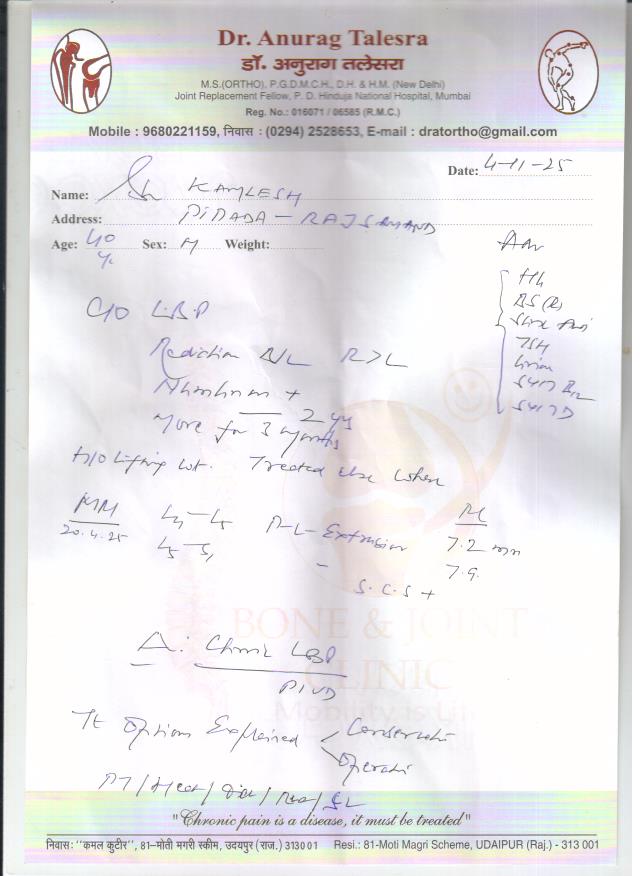 Dr. Anurag Talesra
डॉ. अनुराग तलेसरा
M.S.(ORTHO). P.G.D.M.C.H., D.H. & H.M. (New Delhi)
Joint Replacement Fellow, P. D. Hinduja National Hospital, Mumbai
Reg. No.: 016071 / 06585 (R.M.C.)
Mobile : 9680221159, निवास : (0294) 2528653, E-mail : dratortho@gmail.com
Date: 4-11-25
Name: Sh KAMLESH
Address: - RAJSAMAND
Age: 40 Sex: M Weight:
Adv
Hb
BS (R)
TSH
C/O LBP
Radiation B/L R>L
Numbness +
2 yrs
More for 3 months
H/O lifting wt. Treated else where
20.4.25
L4-L5 Extrusion 7.2 mm
L5-S1 7.9
S.C.S +
BONE & JOINT
CLINIC
A: Chronic LBP
PIVD
Tt Options Explained
Conservati
Operati
PT/Heat/
"Chronic pain is a disease, it must be treated"
निवास: "कमल कुटीर", 81-मोती मगरी स्कीम, उदयपुर (राज.) 313001 Resi.: 81-Moti Magri Scheme, UDAIPUR (Raj.) - 313 001